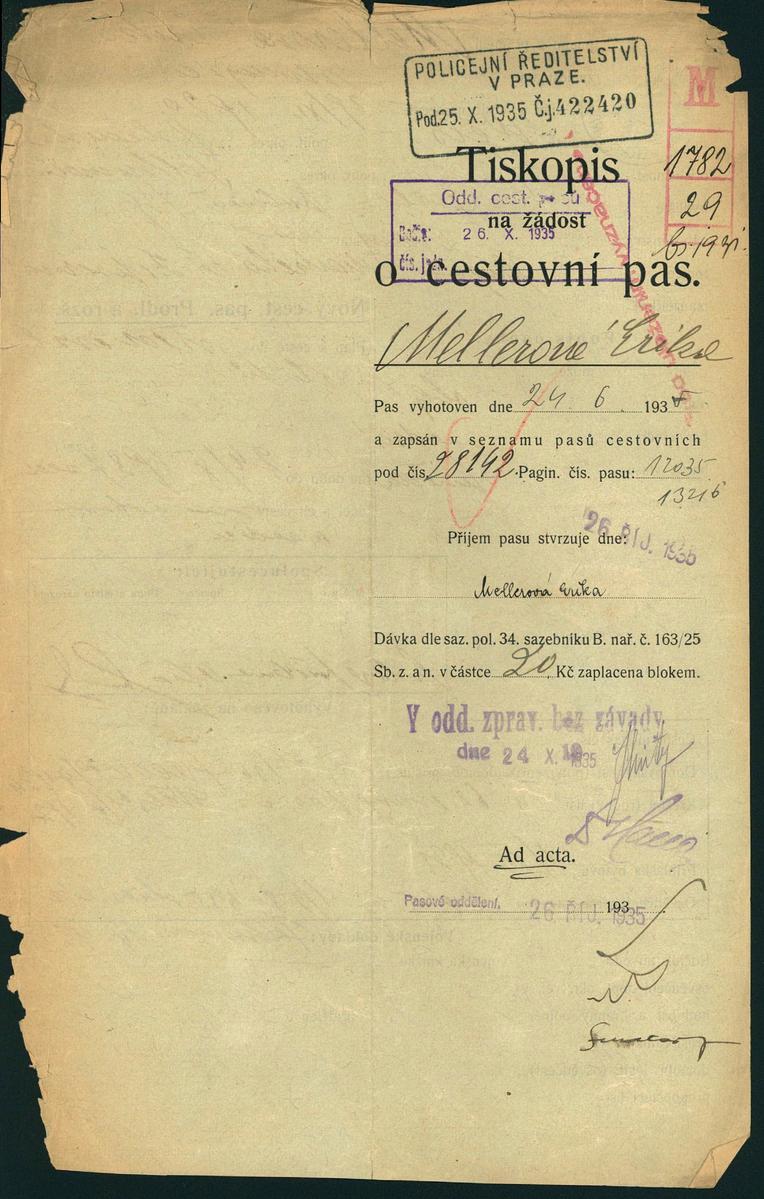 POLICEJNÍ ŘEDITELSTVÍ
V PRAZE.
Pod. 25. X. 1935 Č.j. 422420
M
1782
29
Tiskopis
Odd. cest. pasů
na žádost
Došlo: 26. X. 1935
čís. jedn.
o cestovní pas.
Mellerová Erika
Pas vyhotoven dne 24. 6. 193
a zapsán v seznamu pasů cestovních
pod čís. 98142. Pagin. čís. pasu: 12035
13216
26. ŘÍJ. 1935
Příjem pasu stvrzuje dne:
Mellerová Erika
Dávka dle saz. pol. 34. sazebníku B. nař. č. 163/25
Sb. z. a n. v částce 20 Kč zaplacena blokem.
V odd. zprav. bez závady
dne 24 X. 1935
Ad acta.
Pasové oddělení. 26 ŘÍJ. 1935
193